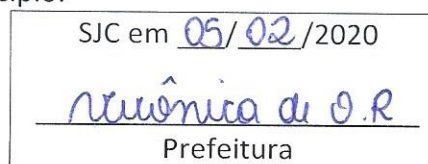 SJC em 05/02/2020
Verônica de O.R
Prefeitura